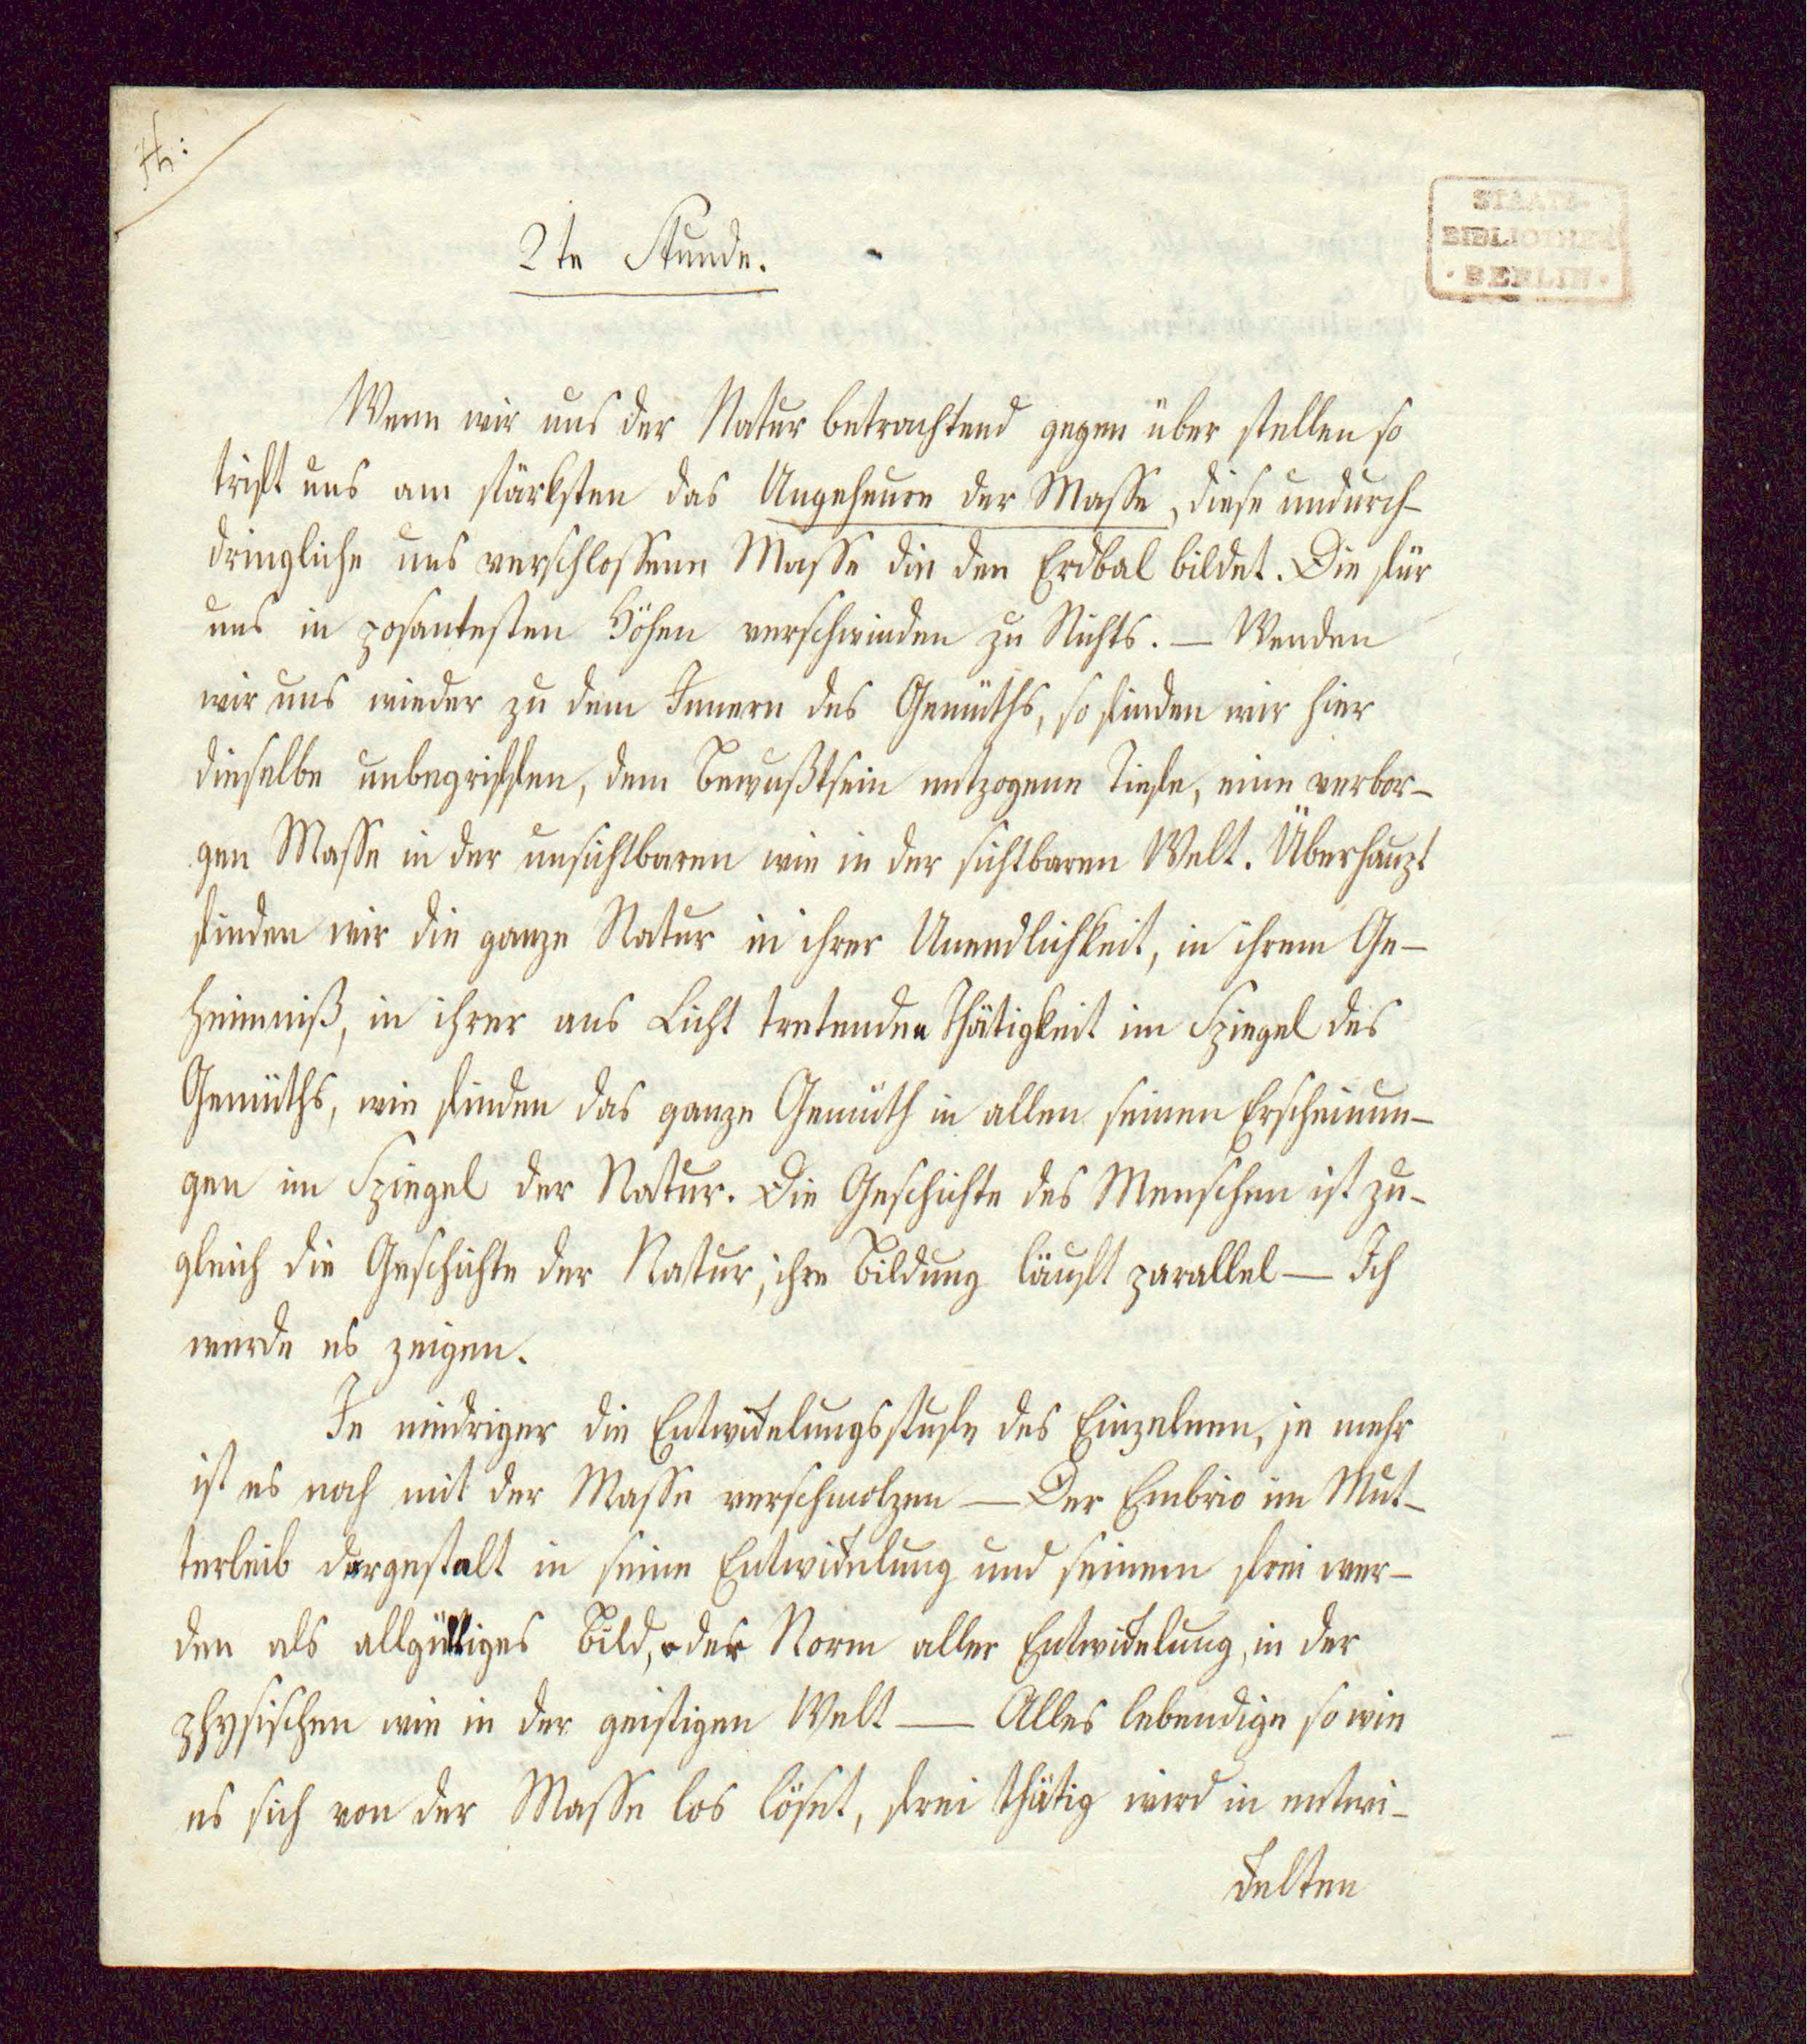 H:
STAATS-
BIBLIOTHEK
· BERLIN ·
2te Stunde.
Wenn wir uns der Natur betrachtend gegen über stellen so
trift uns am stärksten das Ungeheure der Masse, diese undurch-
dringliche uns verschlossene Masse die den Erdbal bildet. Die für
uns in posantesten Höhen verschwinden zu Nichts. — Wenden
wir uns wieder zu dem Innern des Gemüths, so finden wir hier
dieselbe unbegriffen, dem Bewußtsein entzogene Tiefe, eine verbor-
gen Masse in der unsichtbaren wie in der sichtbaren Welt. Überhaupt
finden wir die ganze Natur in ihrer Unendlichkeit, in ihrem Ge-
heimniß, in ihrer ans Licht tretenden Thätigkeit im Spiegel des
Gemüths, wie finden das ganze Gemüth in allen seinen Erscheinun-
gen im Spiegel der Natur. Die Geschichte des Menschen ist zu-
gleich die Geschichte der Natur, ihre Bildung läuft parallel — Ich
werde es zeigen.
Je niedriger die Entwickelungsstufe des Einzelnen, je mehr
ist es noch mit der Masse verschmolzen — Der Embrio im Mut-
terleib dargestalt in seine Entwickelung und seinem frei wer-
den als allgültiges Bild, oder Norm aller Entwickelung, in der
physischen wie in der geistigen Welt — Alles lebendige so wie
es sich von der Masse los löset, frei thätig wird in entwi-
ckelten